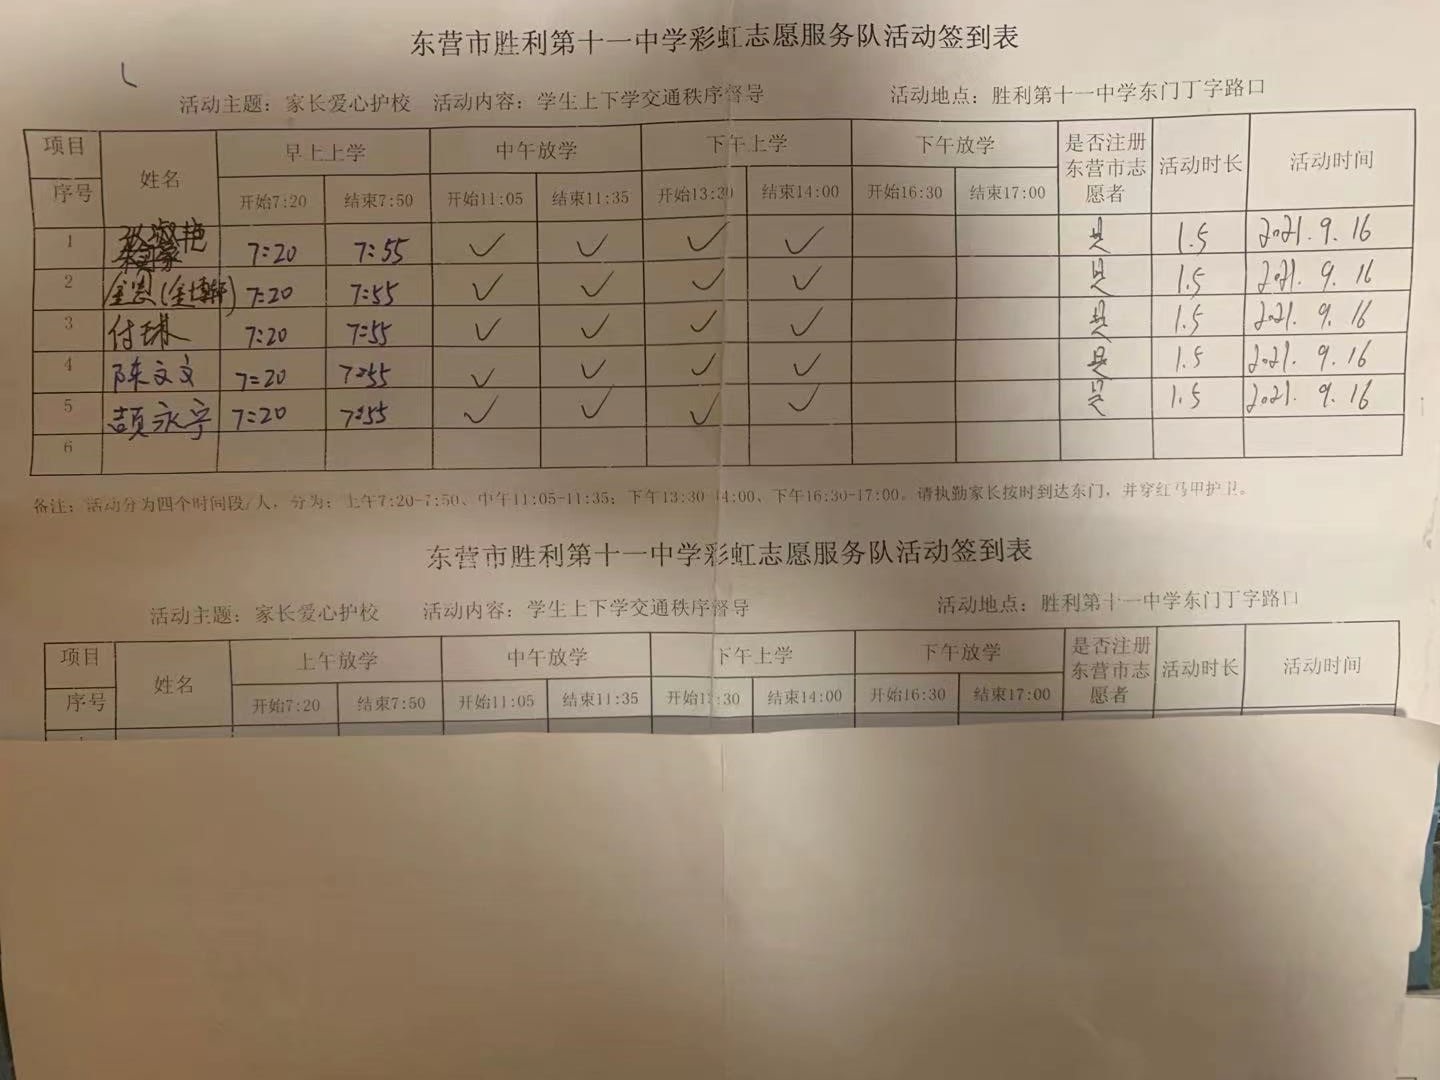 东营市胜利第十一中学彩虹志愿服务队活动签到表
活动主题：家长爱心护校 活动内容：学生上下学交通秩序督导 活动地点：胜利第十一中学东门丁字路口
项目 姓名 早上上学 中午放学 下午上学 下午放学 是否注册东营市志愿者 活动时长 活动时间
序号 开始7:20 结束7:50 开始11:05 结束11:35 开始13:30 结束14:00 开始16:30 结束17:00
1 7:20 7:55 ✓ ✓ ✓ ✓ 是 1.5 2021.9.16
2 7:20 7:55 ✓ ✓ ✓ ✓ 是 1.5 2021.9.16
3 付琳 7:20 7:55 ✓ ✓ ✓ ✓ 是 1.5 2021.9.16
4 陈文文 7:20 7:55 ✓ ✓ ✓ ✓ 是 1.5 2021.9.16
5 颉永宁 7:20 7:55 ✓ ✓ ✓ ✓ 是 1.5 2021.9.16
6
备注：活动分为四个时间段/人，分为：上午7:20-7:50、中午11:05-11:35；下午13:30-14:00、下午16:30-17:00。请执勤家长按时到达东门，并穿红马甲护卫。
东营市胜利第十一中学彩虹志愿服务队活动签到表
活动主题：家长爱心护校 活动内容：学生上下学交通秩序督导 活动地点：胜利第十一中学东门丁字路口
项目 姓名 上午放学 中午放学 下午上学 下午放学 是否注册东营市志愿者 活动时长 活动时间
序号 开始7:20 结束7:50 开始11:05 结束11:35 开始13:30 结束14:00 开始16:30 结束17:00